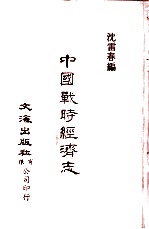 沈雷春編
中國戰時經濟志
文海出版社有限公司印行